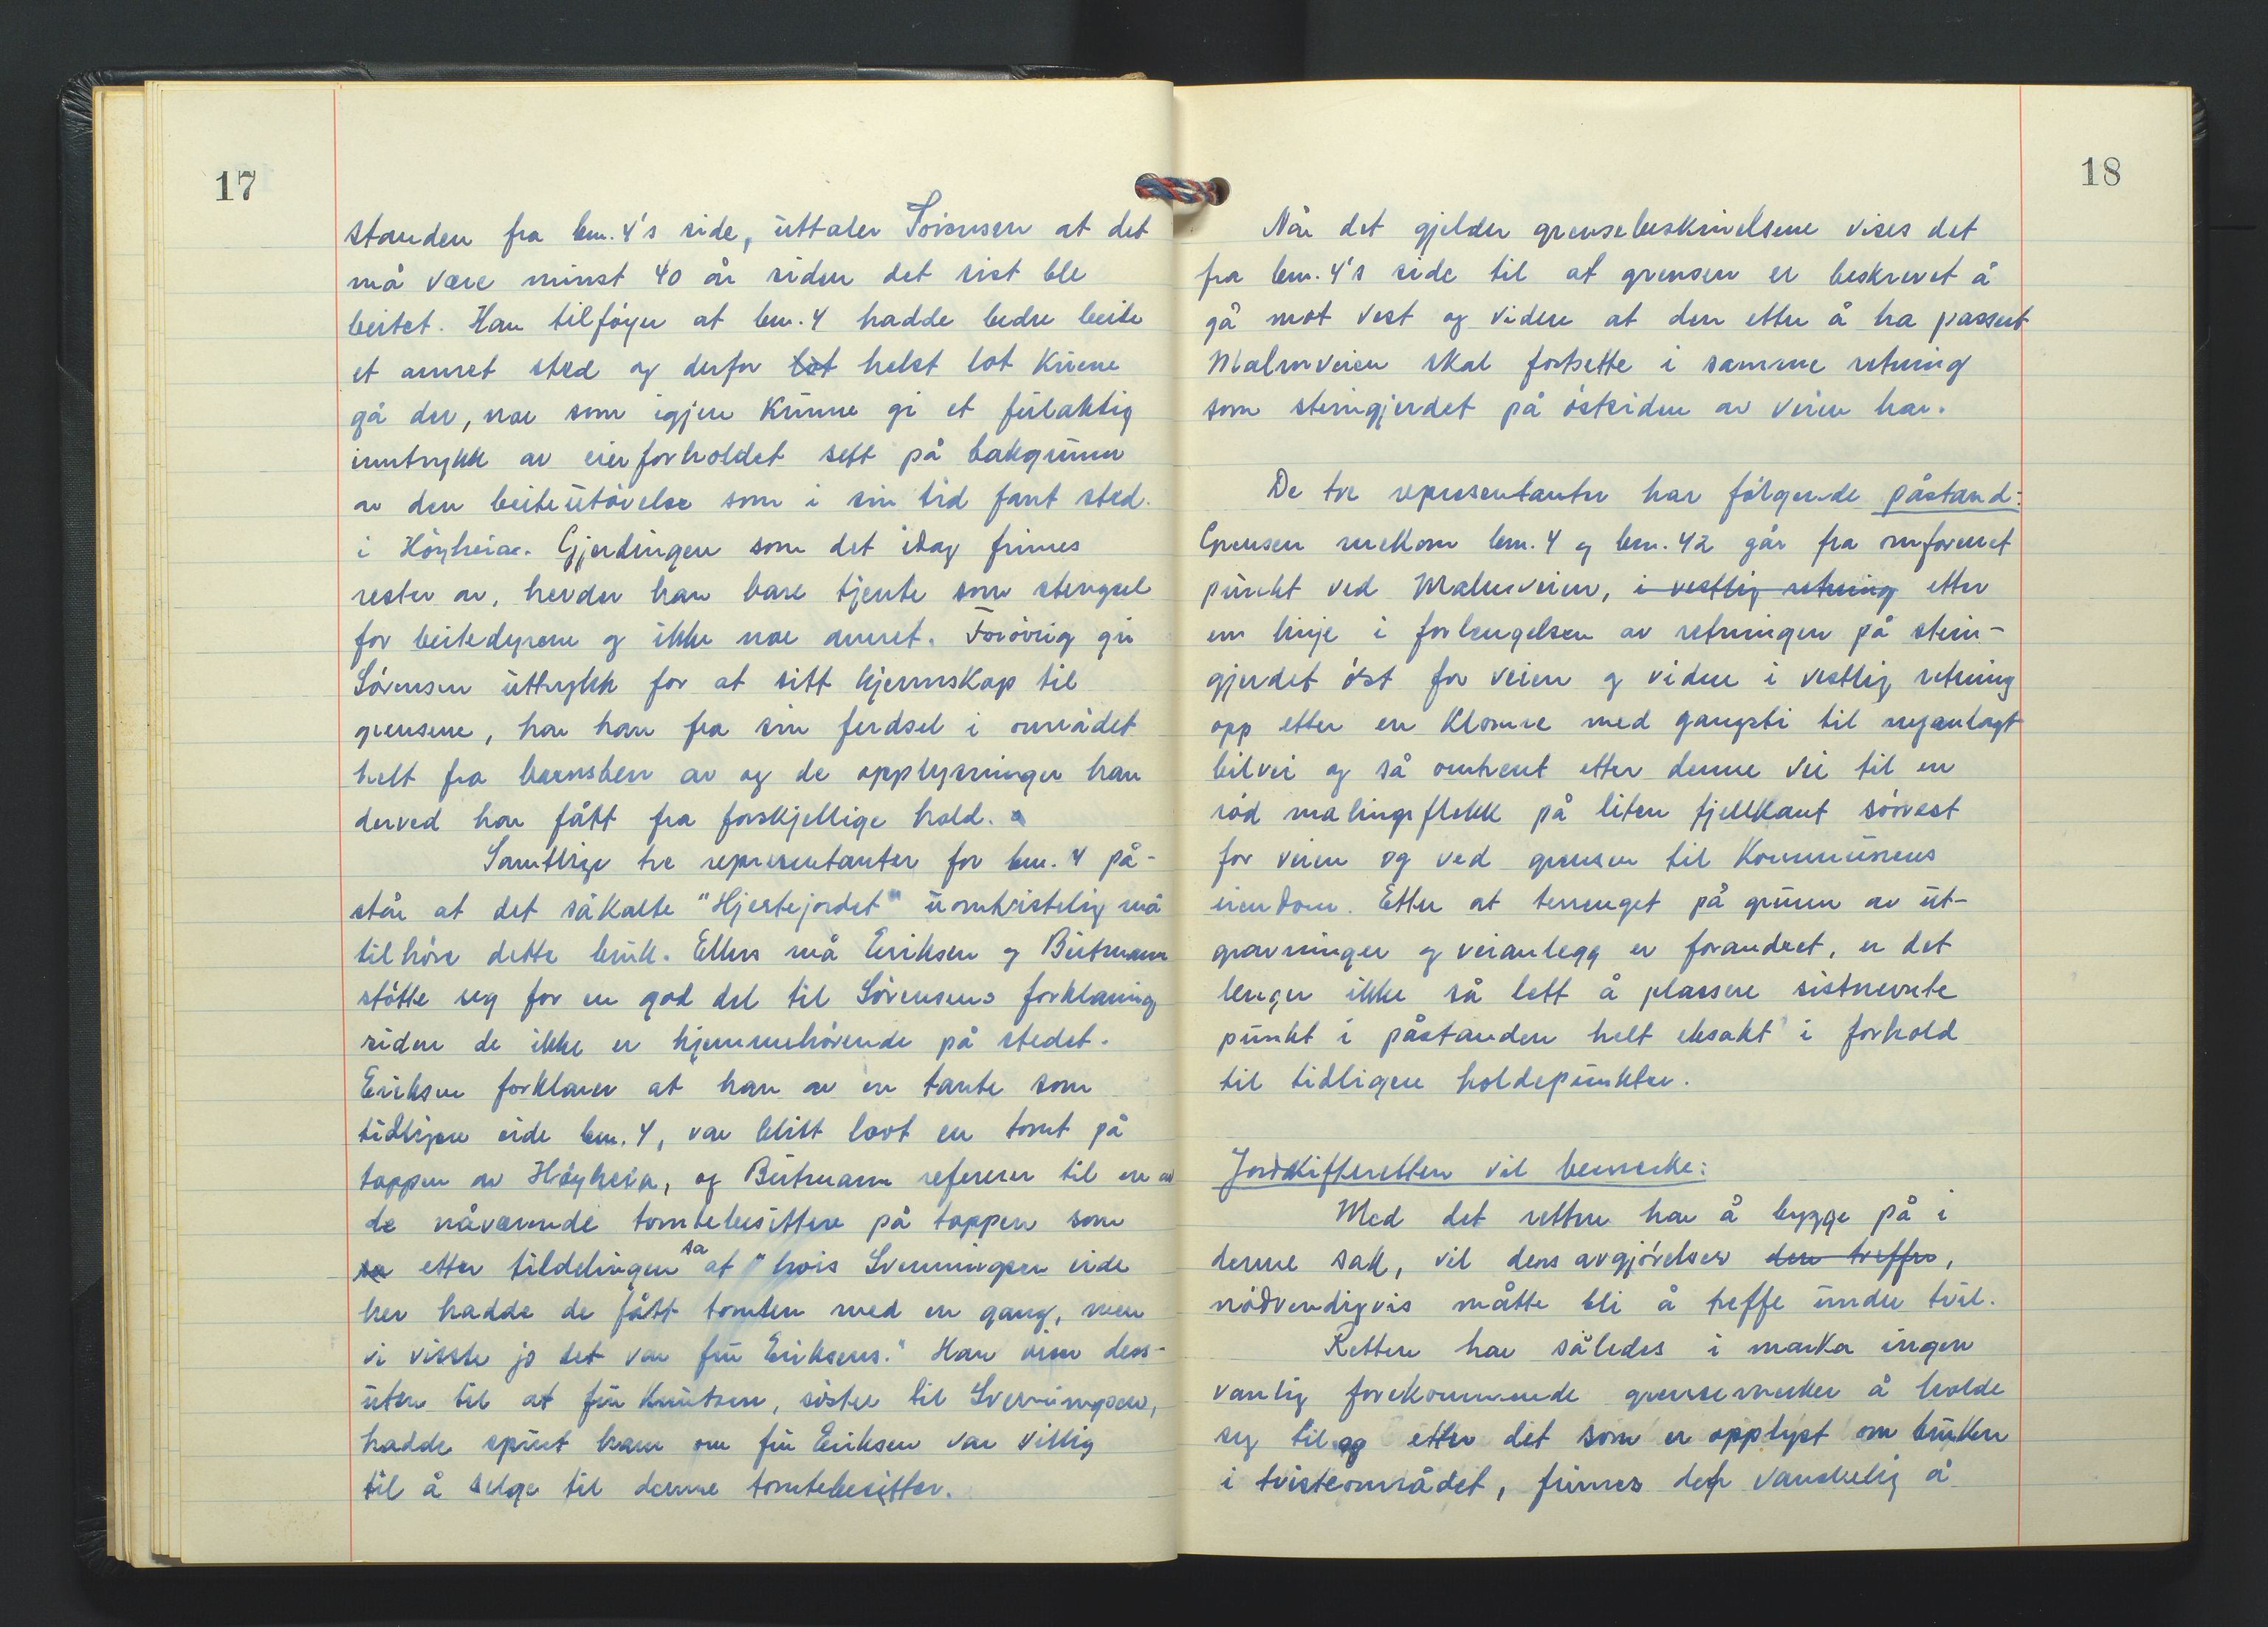 17
standen fra bnr. 4's side, uttaler Sörensen at det
må være minst 40 år siden det sist ble
beitet. Han tilföyer at bnr. 4 hadde bedre beite
et annet sted og derfor lot helst lot kuene
gå der, noe som igjen kunne gi et feilaktig
inntrykk av eierforholdet sett på bakgrunn
av den beiteutövelse som i sin tid fant sted
i Höyheia. Gjerdingen som det idag finnes
rester av, hevder han bare tjente som stengsel
for beitedyrene og ikke noe annet. Forövrig gir
Sörensen uttrykk for at sitt kjennskap til
grensene, har han fra sin ferdsel i området
helt fra barnsben av og de opplysninger han
derved har fått fra forskjellige hold.
Samtlige tre representanter for bnr. 4 på-
står at det såkalte "Hjertejordet" uomtvistelig må
tilhöre dette bruk. Ellers må Eriksen og Beitmann
stötte seg for en god del til Sörensens forklaring
siden de ikke er hjemmehörende på stedet.
Eriksen forklarer at han av en tante som
tidligere eide bnr. 4, var blitt lovt en tomt på
toppen av Höyheia, og Beitmann refererer til en av
de nåværende tomtebesittere på toppen som
sa etter tildelingen sa at "hvis Svenningsen eide
her hadde de fått tomten med en gang, men
vi visste jo det var fru Eriksens." Han viser dess-
uten til at fru Knutsen, söster til Svenningsen,
hadde spurt ham om fru Eriksen var villig
til å selge til denne tomtebesitter.
18
Når det gjelder grensebeskrivelsene vises det
fra bnr. 4's side til at grensen er beskrevet å
gå mot vest og videre at den etter å ha passert
Malmveien skal fortsette i samme retning
som steingjerdet på östsiden av veien har.
De tre representanter har fölgende påstand:
Grensen mellom bnr. 4 og bnr. 42 går fra omforenet
punkt ved Malmveien, i vestlig retning etter
en linje i forlengelsen av retningen på stein-
gjerdet öst for veien og videre i vestlig retning
opp etter en klomre med gangsti til nyanlagt
bilvei og så omtrent etter denne vei til en
röd malingsflekk på liten fjellkant sörvest
for veien og ved grensen til Kommunens
eiendom. Etter at terrenget på grunn av ut-
gravninger og veianlegg er forandret, er det
lenger ikke så lett å plassere sistnevnte
punkt i påstanden helt eksakt i forhold
til tidligere holdepunkter.
Jordskifteretten vil bemerke:
Med det retten har å bygge på i
denne sak, vil dens avgjörelser den treffer,
nödvendigvis måtte bli å treffe under tvil.
Retten har således i marka ingen
vanlig forekommende grensemerker å holde
seg til og etter det som er opplyst om bruken
i tvisteområdet, finnes det vanskelig å